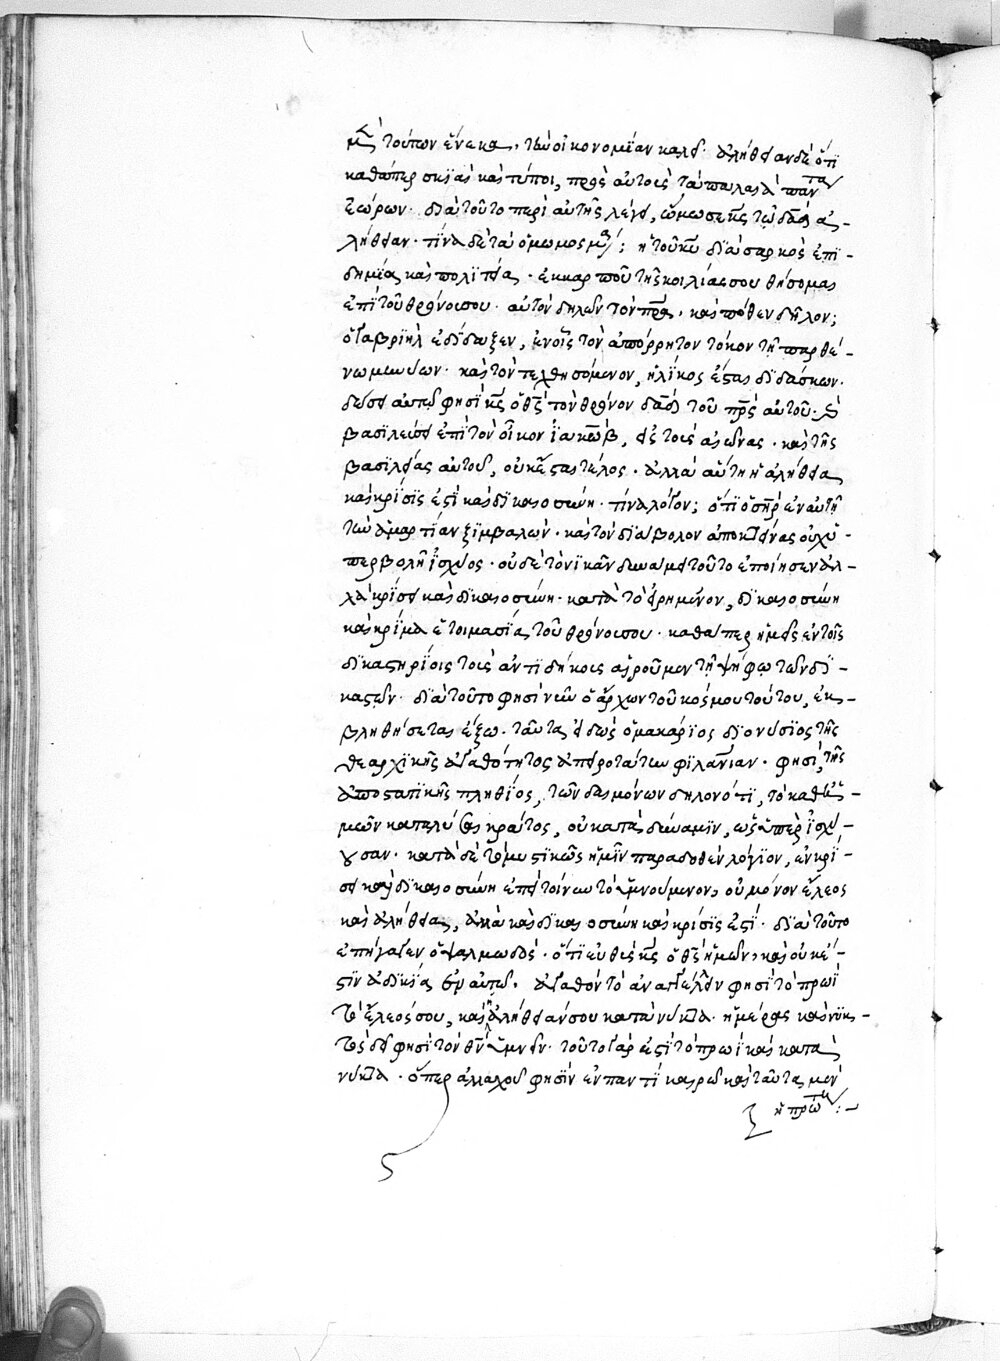 μετὰ τούτων ἕνεκα, τὴν οἰκονομίαν καλεῖ· ἀλήθειαν δὲ ὅτι
καθάπερ σκιᾶι καὶ τύποι, πρὸς αὐτοὺς τὰ παλαιὰ πάντα
ἑώρων· διὰ τοῦτο περὶ αὐτῆς λέγει, ὤμοσε κς τῷ δαδ ἀ-
λήθειαν· τίνα δὲ τὰ ὀμωμοσμένα; ἡ τοῦ κυ διὰ σαρκὸς ἐπι-
δημία καὶ πολιτεία· ἐκ καρποῦ τῆς κοιλίας σου θήσομαι
ἐπὶ τοῦ θρόνου σου· αὐτὸν δηλῶν τὸν πρα, καὶ πόθεν δῆλον;
ὁ γαβριὴλ ἐδίδαξεν, ἐν οἷς τὸν ἀπόρρητον τόκον τῇ παρθέ-
νῳ μηνύων· καὶ τὸν τεχθησόμενον, ἡλίκος ἔσται διδάσκων·
δώσει αὐτῷ φησὶ κς ὁ θς τὸν θρόνον δαδ τοῦ πρς αὐτοῦ· καὶ
βασιλεύσει ἐπὶ τὸν οἶκον ἰακώβ, εἰς τοὺς αἰῶνας· καὶ τῆς
βασιλείας αὐτοῦ, οὐκ ἔσται τέλος· ἀλλὰ αὕτη ἡ ἀλήθεια
καὶ κρίσις ἐστὶ καὶ δικαιοσύνη· τίνα λόγον; ὅτι ὁ σηρ ἐν αὐτῇ
τὴν ἁμαρτίαν ξυμβαλὼν· καὶ τὸν διάβολον ἀποκτείνας οὐχ ὑ-
περβολῇ ἰσχύος· οὐδὲ τὸ νικᾶν δυνάμει τοῦτο ἐποίησεν ἀλ-
λὰ κρίσει καὶ δικαιοσύνη· κατὰ τὸ εἰρημένον, δικαιοσύνη
καὶ κρίμα ἑτοιμασία τοῦ θρόνου σου· καθάπερ ἡμεῖς ἐν τοῖς
δικαστηρίοις τοὺς ἀντιδίκους αἱροῦμεν τῇ ψήφῳ τῶν δι-
καστῶν· διὰ τοῦτο φησὶ νῦν ὁ ἄρχων τοῦ κόσμου τούτου, ἐκ-
βληθήσεται ἔξω· ταῦτα εἰδὼς ὁ μακάριος διονύσιος τῆς
θεαρχικῆς ἀγαθότητος ἀπειροτάτων φιλανιαν· φησί, τῆς
ἀποστατικῆς πληθύος, τῶν δαιμόνων δηλονότι, τὸ καθ' ἡ-
μῶν καταλύσαι κράτος, οὐ κατὰ δύναμιν, ὡς ὑπερισχύ-
ουσαν· κατὰ δὲ τὸ μυστικῶς ἡμῖν παραδοθὲν λόγιον, ἐν κρί-
σει καὶ δικαιοσύνῃ ἐπεὶ τοίνυν τὸ ὑμνούμενον, οὐ μόνον ἔλεος
καὶ ἀλήθεια, ἀλλὰ καὶ δικαιοσύνη καὶ κρίσις ἐστί· διὰ τοῦτο
ἐπήγαγεν ὁ ψαλμωδὸς· ὅτι εὐθὺς κς ὁ θς ἡμῶν, καὶ οὐκ ἔ-
στιν ἀδικία ἐν αὐτῷ· ἀγαθὸν τὸ ἀναγγέλλειν φησὶ τὸ πρωῒ
τὸ ἔλεός σου, καὶ τὴν ἀλήθειάν σου κατὰ νύκτα· ἡμέρας καὶ νυκ-
τὸς δεῖ φησὶ τὸν θν ὑμνεῖν· τοῦτο γάρ ἐστι τὸ πρωῒ καὶ κατὰ
νύκτα· ὅπερ ἀλλαχοῦ φησὶν ἐν παντὶ καιρῷ καὶ ταῦτα μὲν
ἡ πρώτη :-